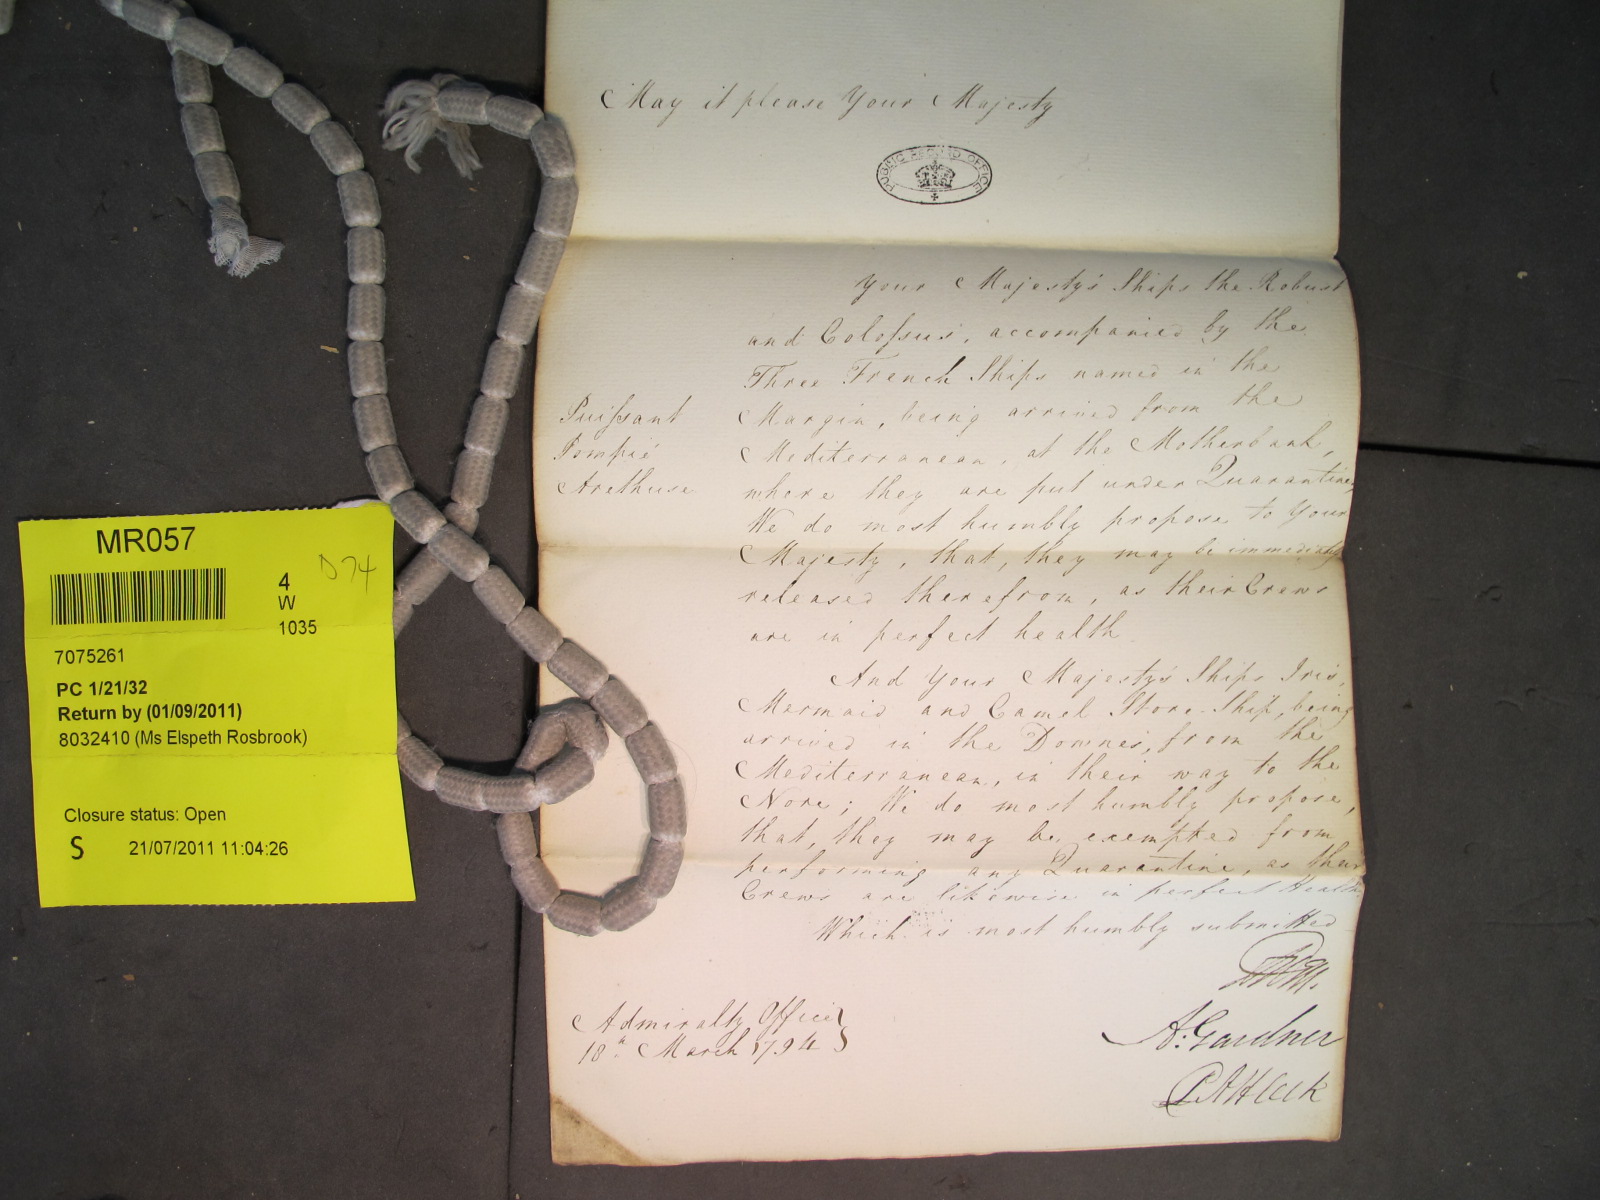 May it please Your Majesty
PUBLIC RECORD OFFICE
Your Majesty's Ships the Robust
and Coloſsus, accompanied by the
Three French Ships named in the
Puiſsant
Pompée
Arethuse
Margin, being arrived from the
Mediterranean, at the Motherbank,
where they are put under Quarantine,
We do most humbly propose to Your
Majesty, that, they may be immediately
released therefrom, as their Crews
are in perfect health
And Your Majesty's Ships Iris,
Mermaid and Camel Store-Ship, being
arrived in the Downes, from the
Mediterranean, in their way to the
Nore; We do most humbly propose,
that, they may be exempted from
performing any Quarantine, as their
Crews are likewise in perfect Health
Which is most humbly submitted
Admiralty Office
18th March 1794
A: Gardner
MR057
D74
4
W
1035
7075261
PC 1/21/32
Return by (01/09/2011)
8032410 (Ms Elspeth Rosbrook)
Closure status: Open
S 21/07/2011 11:04:26